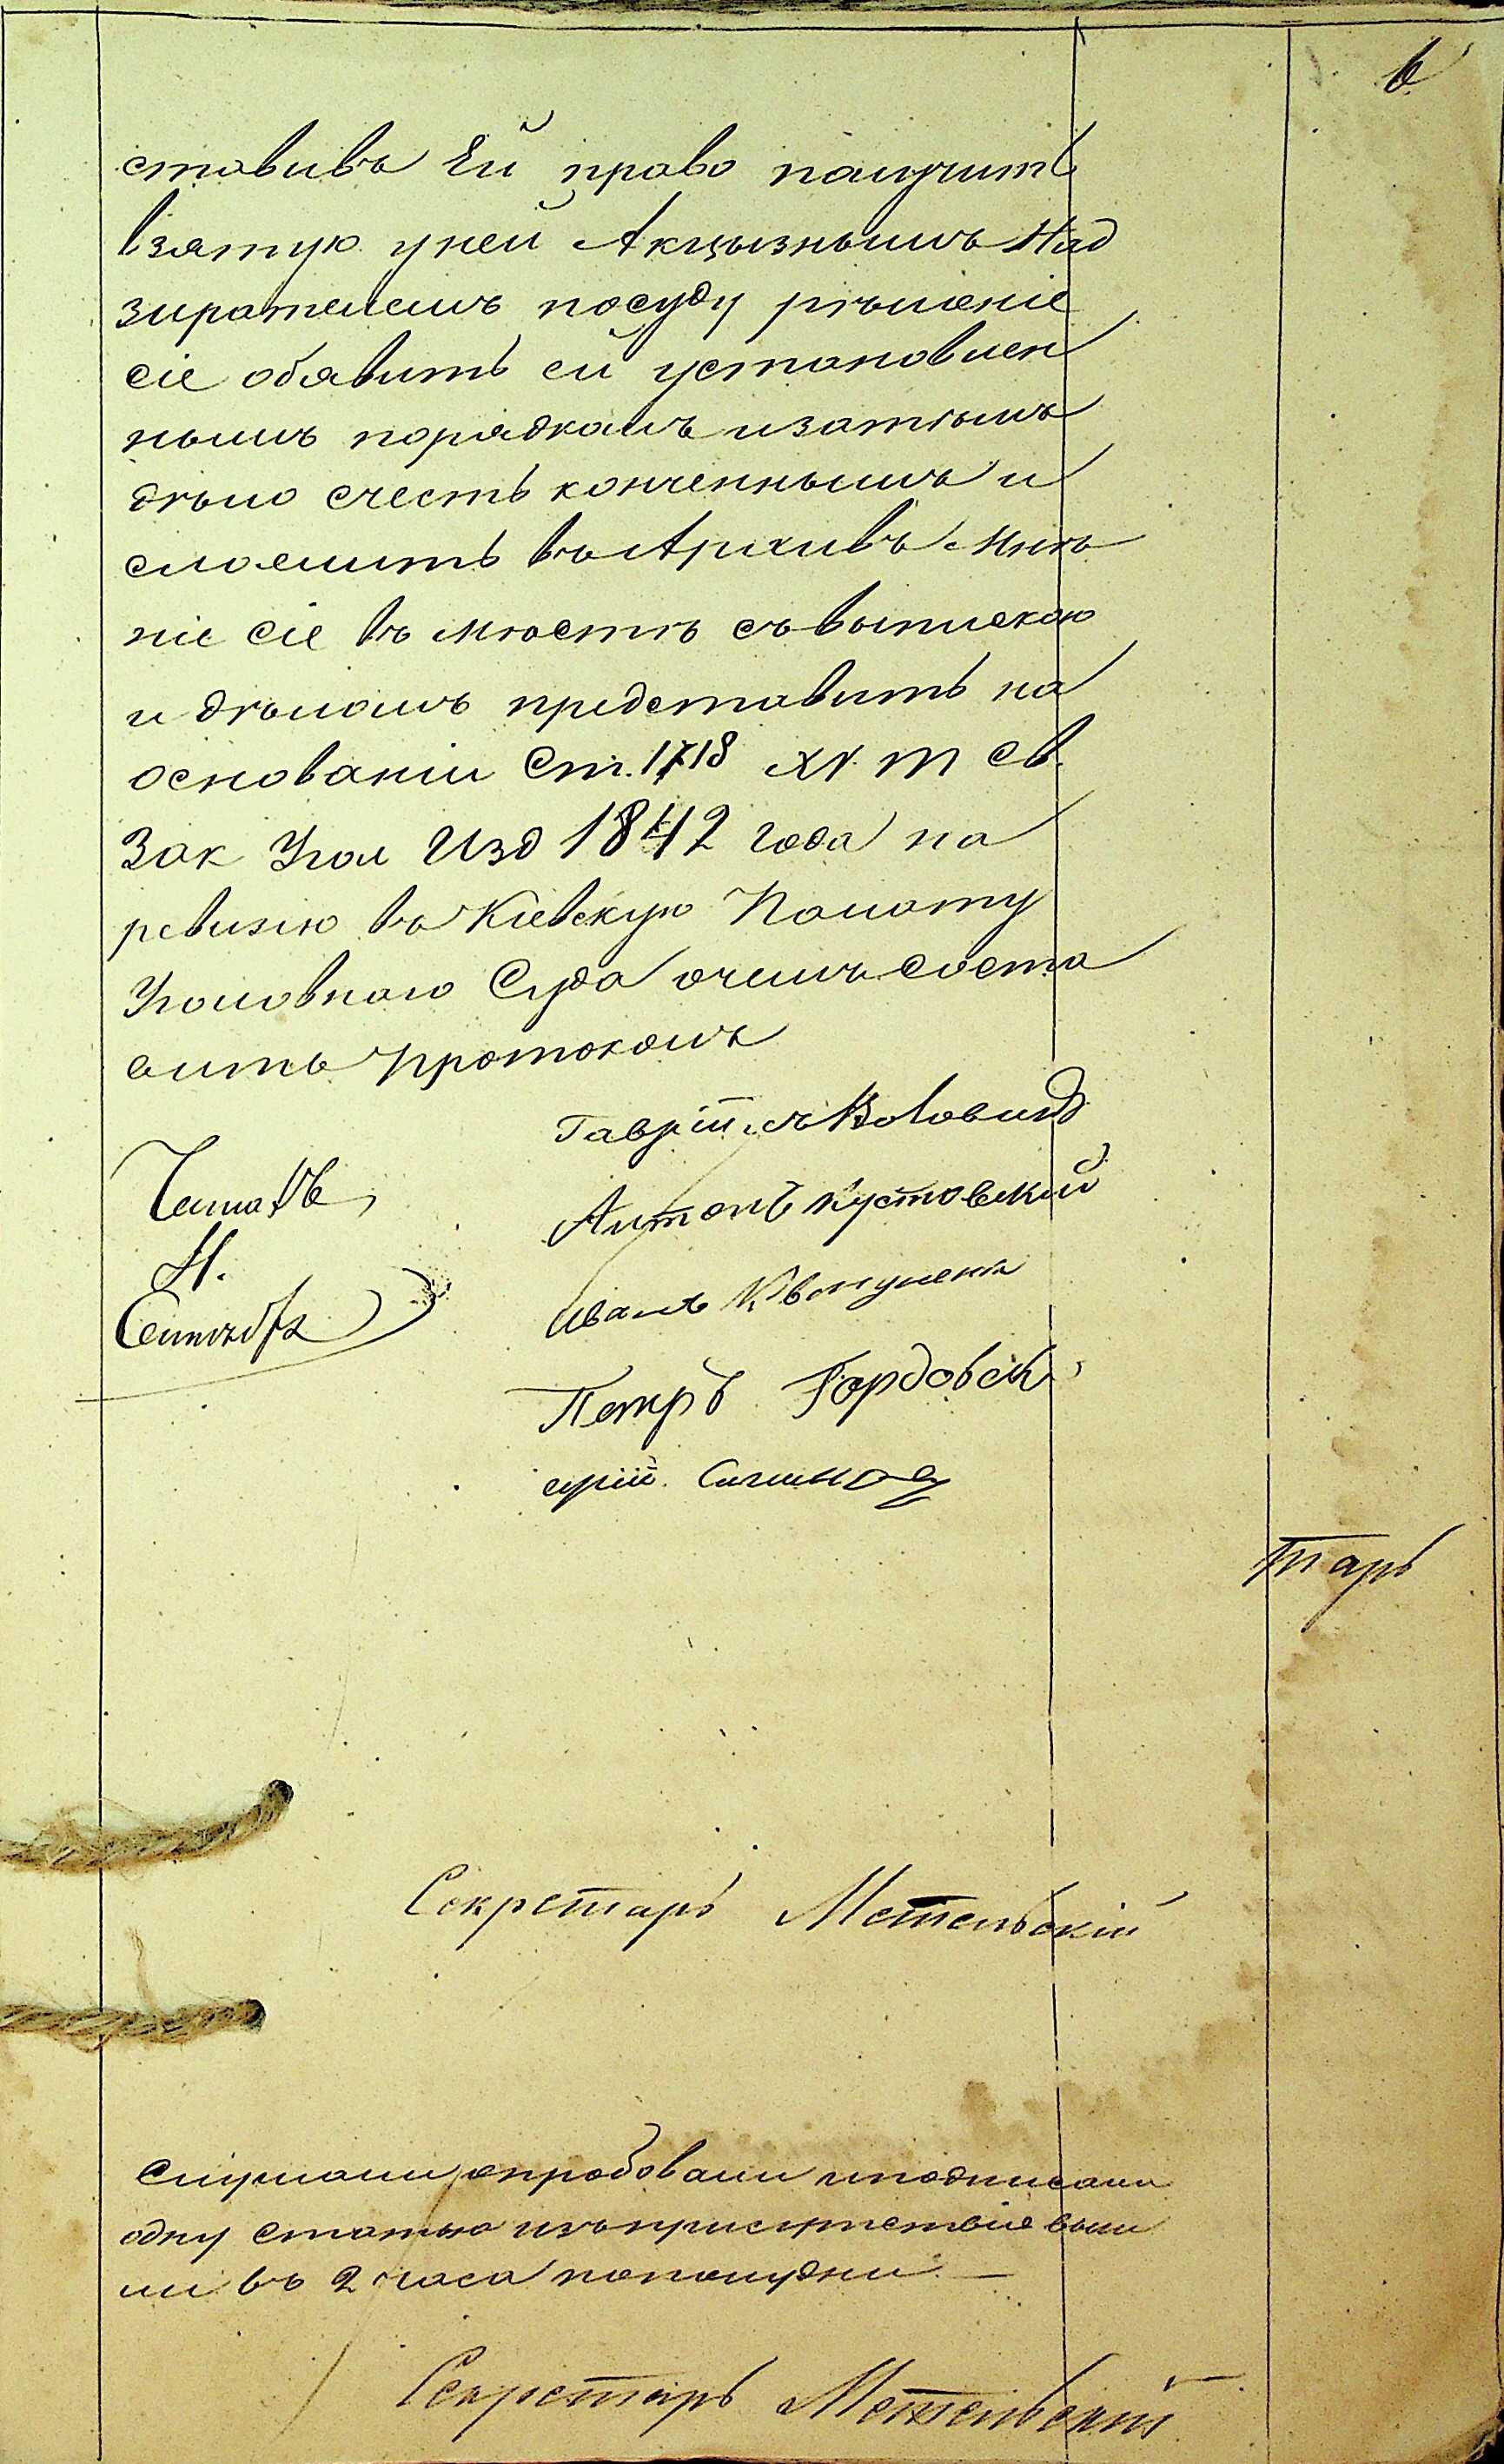 6
ставивъ Ей право получить
взятую уней Акцызнымъ Над
зирателемъ посуду рѣшеніе
сіе обявить ей установлен
нымъ порядкомъ изатѣмъ
дѣло счесть конченнымъ и
сложить въ Архивъ Мнѣ
ніе сіе въ мѣстѣ съ выпискою
и дѣломъ представить на
основаніи Ст. 1718 XV т Св.
Зак Угол Изд 1842 года на
ревизію въ Кіевскую Полату
Уголовнаго Суда очемъ соста
вить протоколъ
Антонъ Кустовскій
Читалъ
Н.
Иванъ
Петръ Гордовск
тарь
Секретарь Метельскій
Слушали опробовали иподписали
одну статью изъ присутствіе выш
ли въ 2 часа пополудни —
Секретарь Метельскій